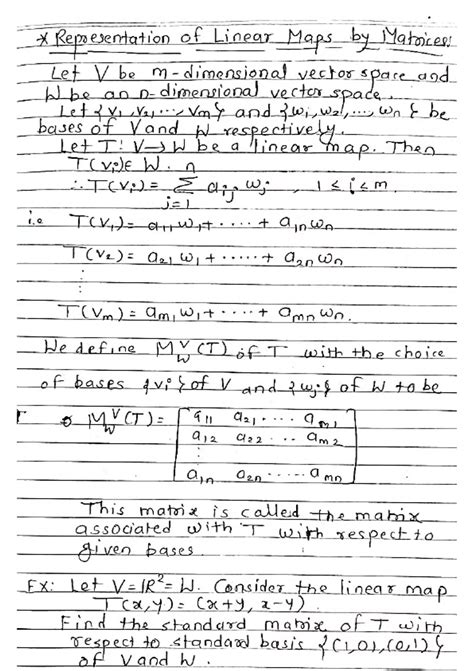 * Representation of Linear Maps by Matrices:
Let V be m-dimensional vector space and
W be an n-dimensional vector space.
Let {v₁, v₂, ..., vm} and {w₁, w₂, ..., wn} be
bases of V and W respectively.
Let T: V→W be a linear map. Then
T(vᵢ)∈ W.
∴ T(vᵢ) = n∑j=1 aᵢⱼ wⱼ , 1 ≤ i ≤ m.
i.e T(v₁) = a₁₁ w₁ + ..... + a₁n wn
T(v₂) = a₂₁ w₁ + ...... + a₂n wn
⋮
T(vm) = am₁ w₁ + ..... + amn wn.
We define M^V_W (T) of T with the choice
of bases {vᵢ} of V and {wⱼ} of W to be
M^V_W (T) = [ a₁₁ a₂₁ .... am₁
a₁₂ a₂₂ ... am₂
⋮
a₁n a₂n ...... amn ]
This matrix is called the matrix
associated with T with respect to
given bases.
Ex: Let V = ℝ² = W. Consider the linear map
T(x,y) = (x+y, x-y).
Find the standard matrix of T with
respect to standard basis {(1,0), (0,1)}
of V and W.